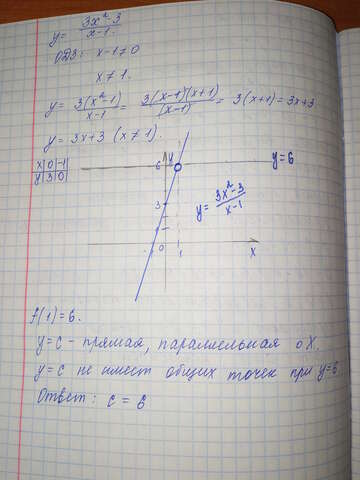 y = (3x² - 3)/(x - 1).
ОДЗ: x - 1 ≠ 0
x ≠ 1.
y = 3(x² - 1)/(x - 1) = 3(x - 1)(x + 1)/(x - 1) = 3(x + 1) = 3x + 3
y = 3x + 3 (x ≠ 1).
x | 0 | -1
y | 3 | 0
y
6
y = 6
3
y = (3x² - 3)/(x - 1)
1
0
1
x
f(1) = 6.
y = c - прямая, параллельная оX.
y = c не имеет общих точек при y = 6
Ответ: c = 6